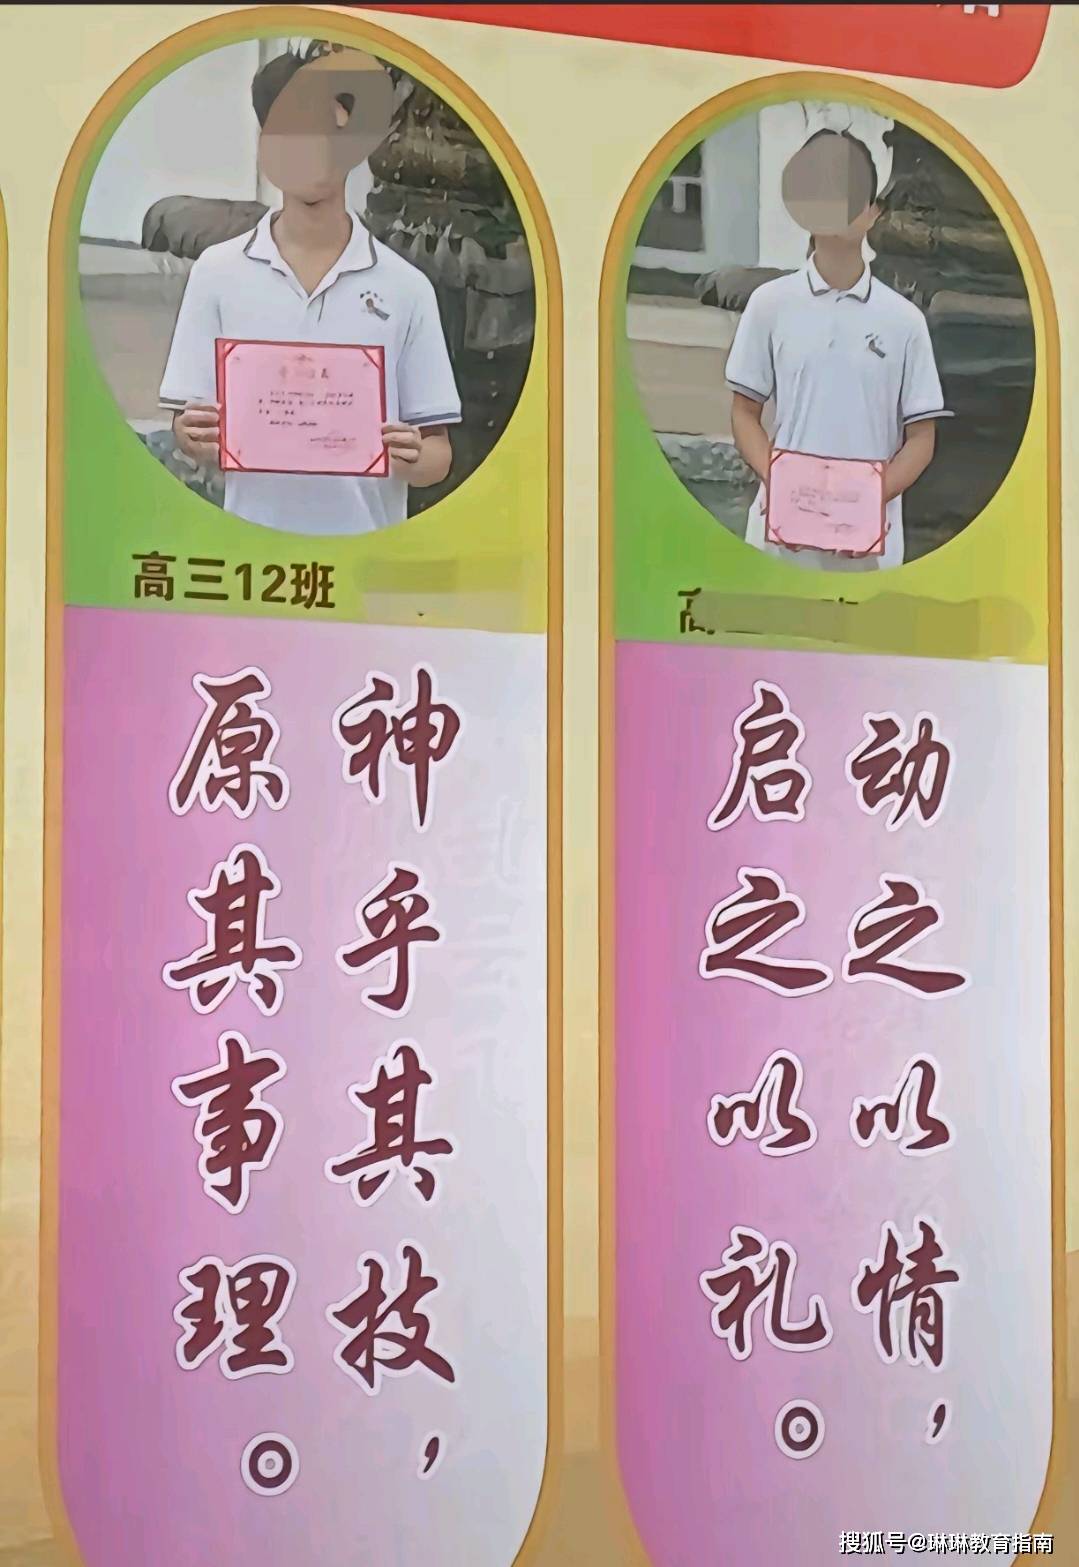 高三12班
神乎其技，
原其事理。
动之以情，
启之以礼。
搜狐号@琳琳教育指南